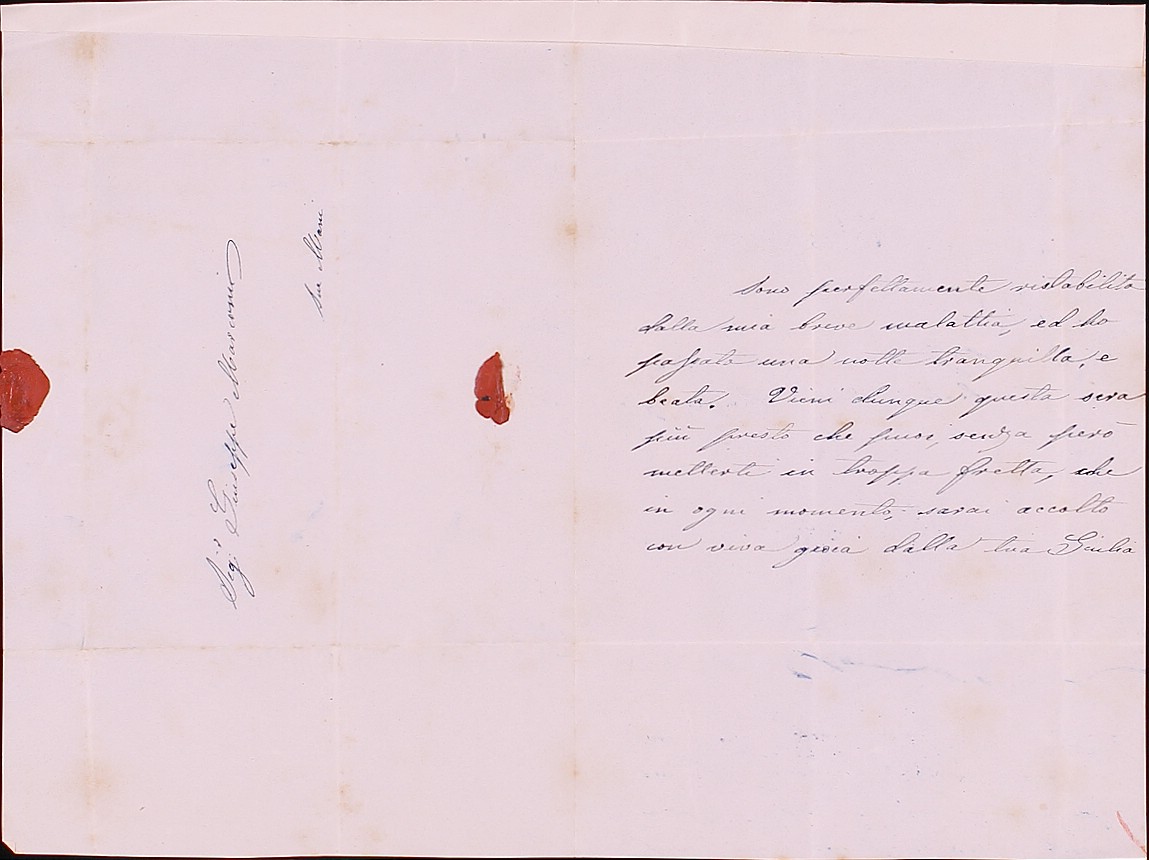 Sig.r Giuseppe Marconi
Sue Mani
Sono perfettamente ristabilita
dalla mia breve malattia, ed ho
passato una notte tranquilla, e
beata. Vieni dunque questa sera
più presto che puoi, senza però
metterti in troppa fretta, che
in ogni momento, sarai accolto
con viva gioia dalla tua Giulia